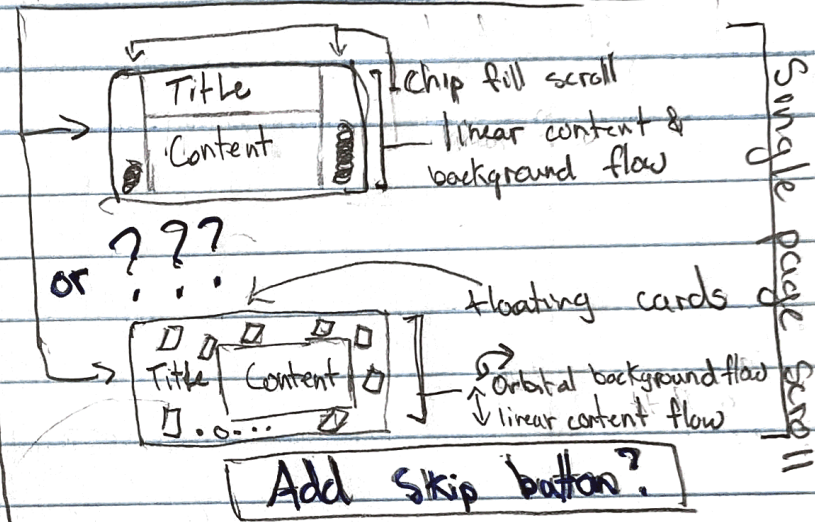 Title
Content
Chip fill scroll
linear content &
background flow
or ???
floating cards
Title Content
Orbital background flow
linear content flow
Add skip button?
Single page scroll